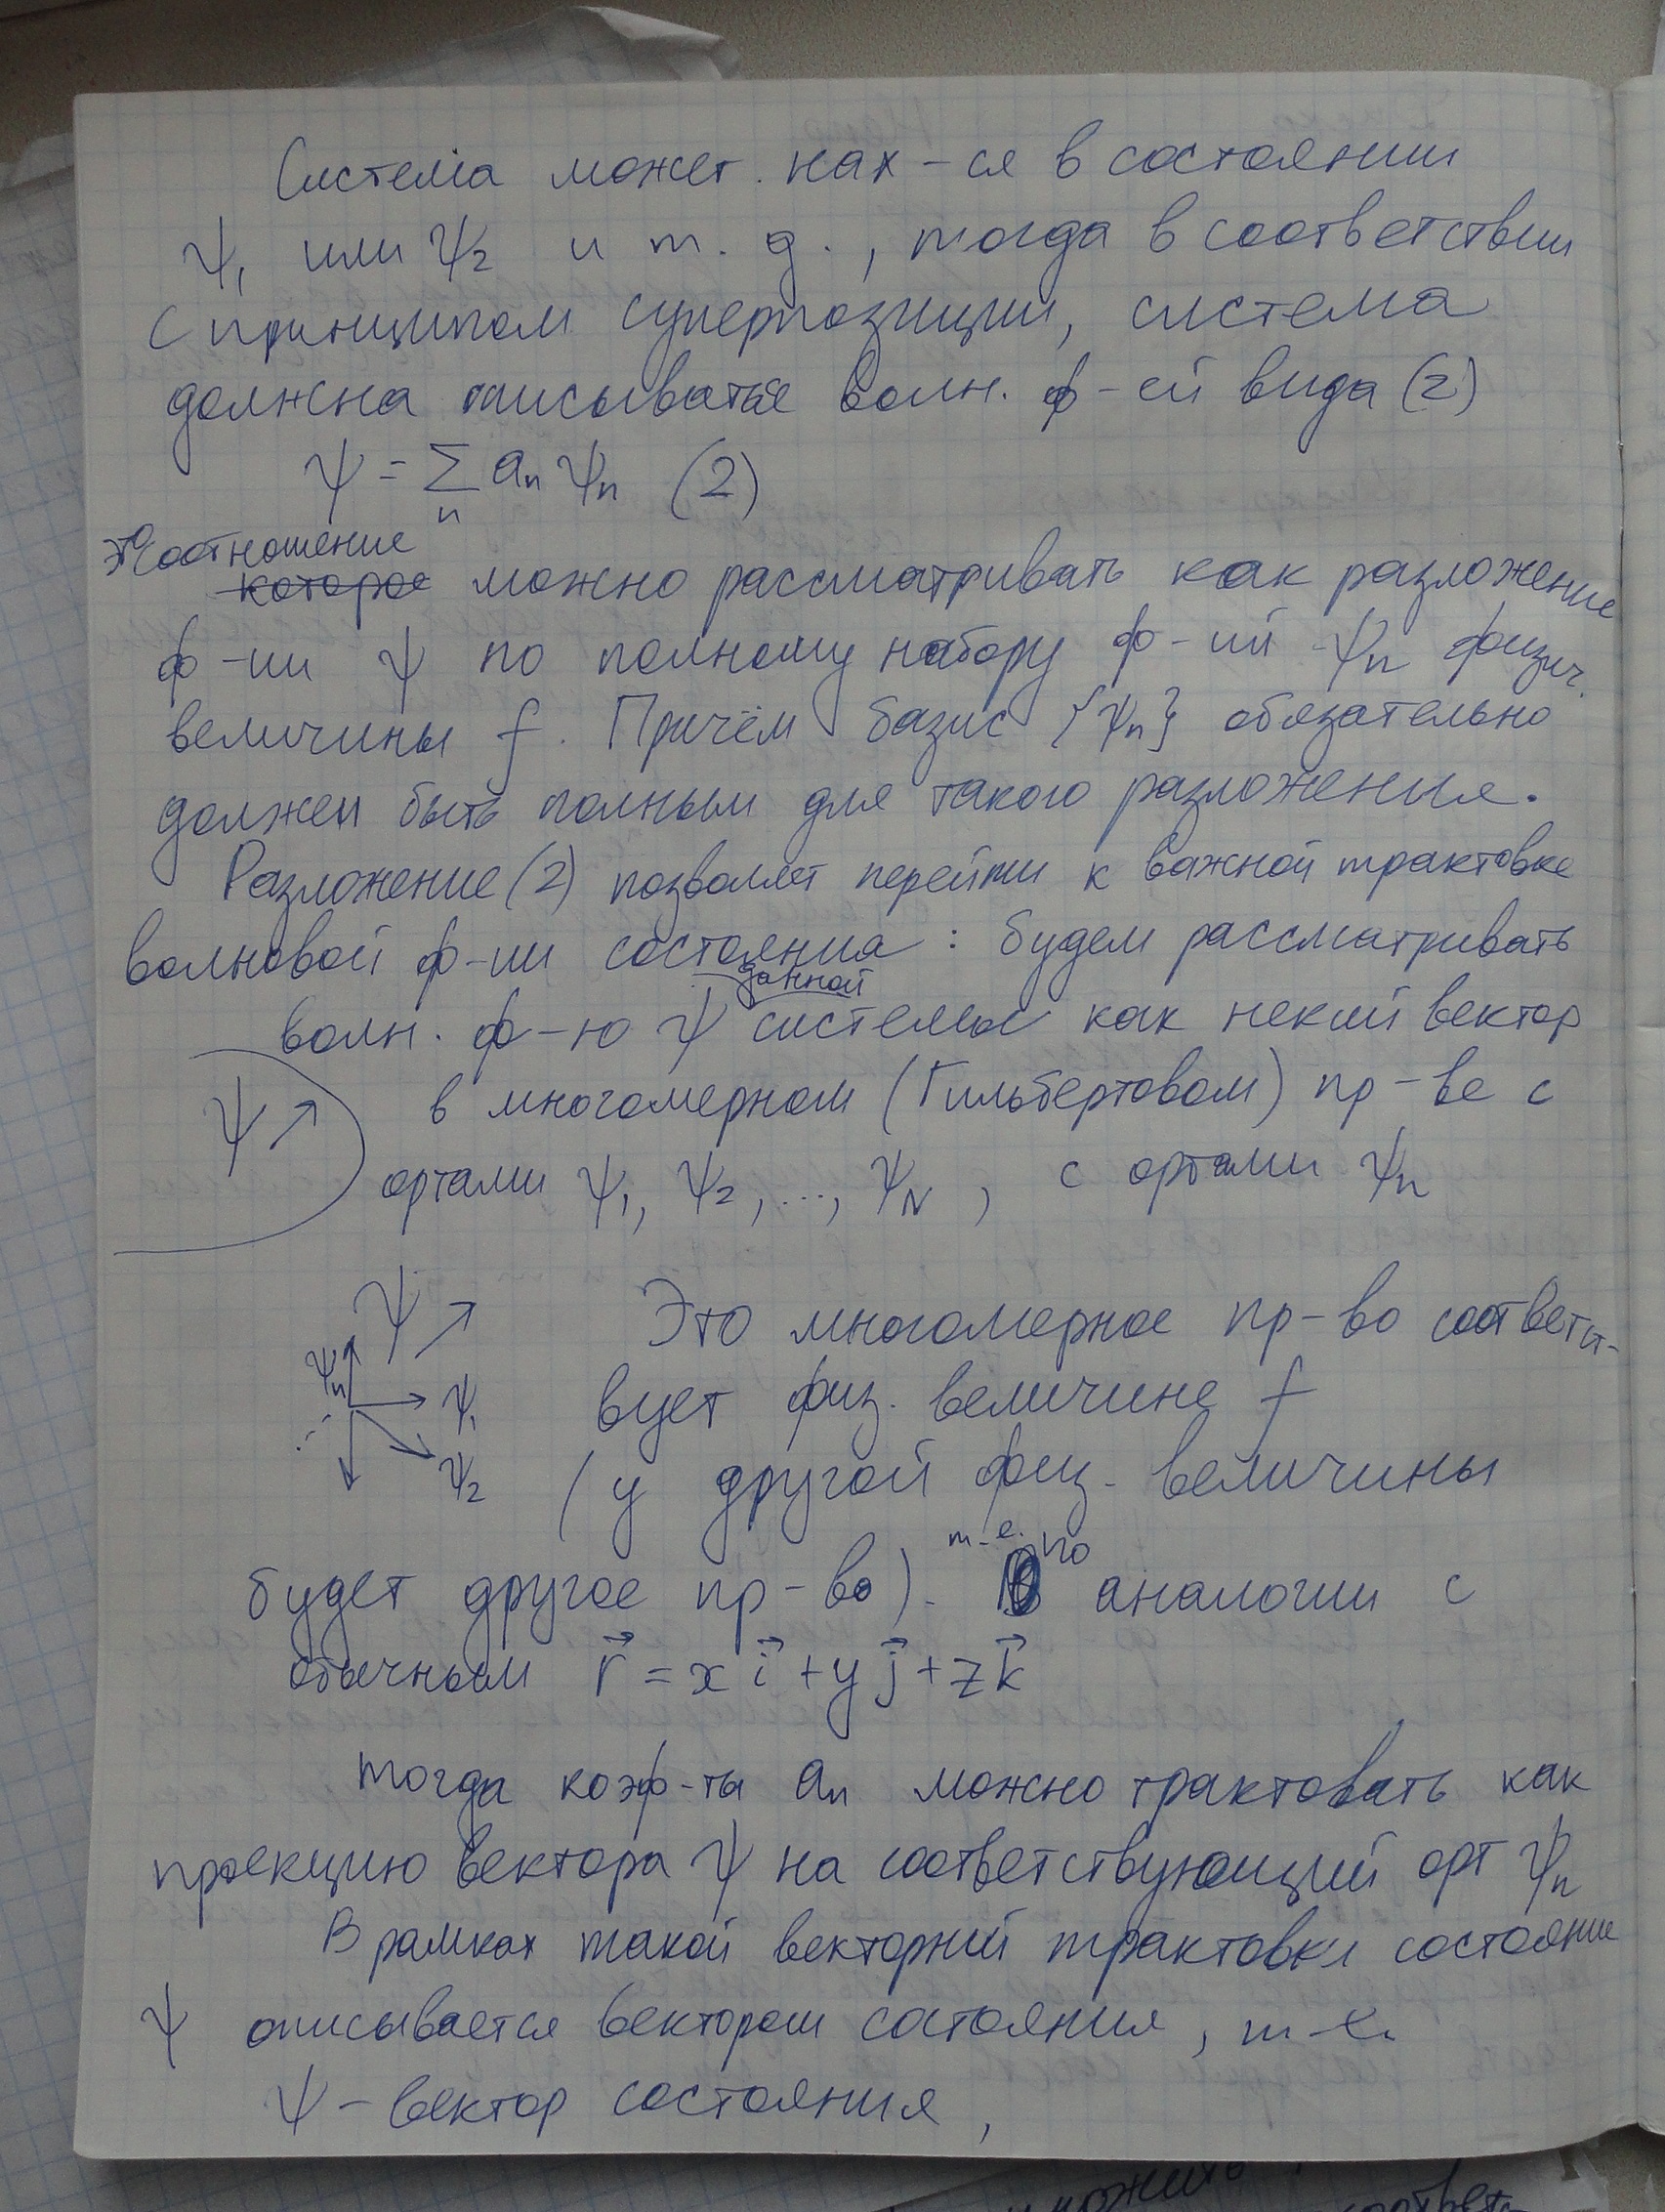 Система может нах-ся в состоянии
ψ₁ или ψ₂ и т. д., тогда в соответствии
с принципом суперпозиции, система
должна описываться волн. ф-ей вида (2)
ψ = Σ aₙ ψₙ (2)
n
Это соотношение
которое можно рассматривать как разложение
ф-ии ψ по полному набору ф-ий ψₙ физич.
величины f. Причём базис {ψₙ} обязательно
должен быть полным для такого разложения.
Разложение (2) позволяет перейти к важной трактовке
волновой ф-ии состояния : будем рассматривать
данной
волн. ф-ю ψ системы как некий вектор
ψ ↗ в многомерном (Гильбертовом) пр-ве с
ортами ψ₁, ψ₂, ..., ψN , с ортами ψₙ
ψ ↗ Это многомерное пр-во соответст-
ψₙ ψ₁ вует физ. величине f
ψ₂ (у другой физ. величины
т-е. по
будет другое пр-во). аналогии с
обычным r⃗ = x i⃗ + y j⃗ + z k⃗
тогда коэф-ты aₙ можно трактовать как
проекцию вектора ψ на соответствующий орт ψₙ
В рамках такой векторной трактовки состояние
ψ описывается вектором состояния, т-е.
ψ – вектор состояния,